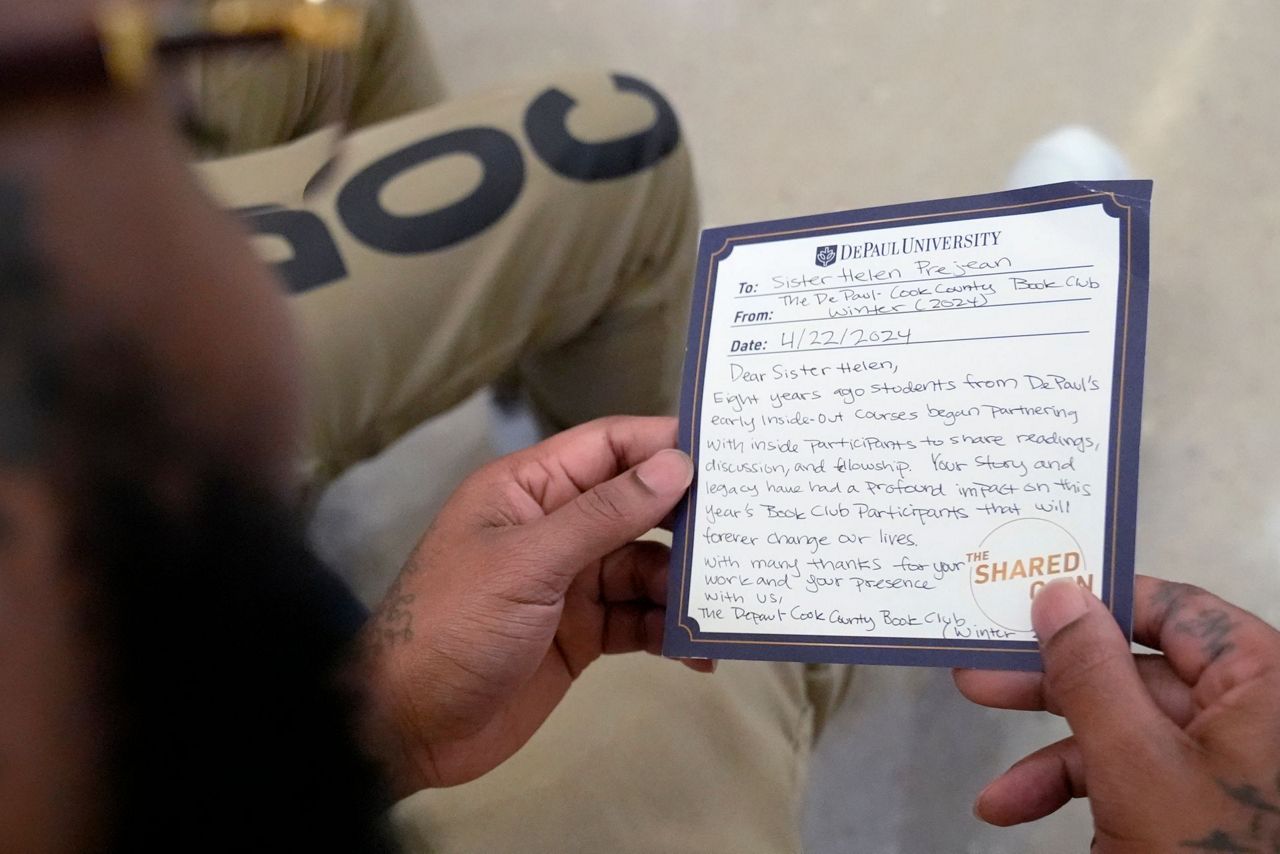 DOC
DEPAUL UNIVERSITY
To: Sister Helen Prejean
From: The DePaul-Cook County Book Club
Winter (2024)
Date: 4/22/2024
Dear Sister Helen,
Eight years ago students from DePaul's
early Inside-Out courses began partnering
with inside participants to share readings,
discussion, and fellowship. Your story and
legacy have had a profound impact on this
year's Book Club Participants that will
forever change our lives.
With many thanks for your
work and your presence
with us,
The Depaul-Cook County Book Club
(Winter
THE
SHARED